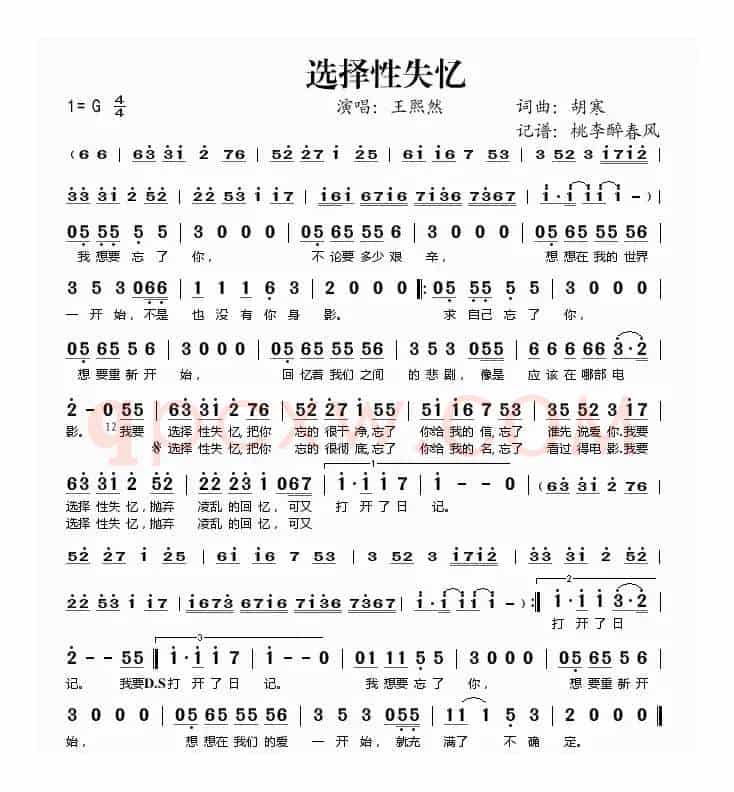 选择性失忆
1=G 4/4 演唱：王熙然 词曲：胡寒
记谱：桃李醉春风
(6 6 | 63 31 2 76 | 52 27 1 25 | 61 16 7 53 | 3 523 1712 |
33 31 2 52 | 22 53 1 17 | 161 6716 7136 7367 | 1·1 11 1 - ) |
05 55 5 5 | 3 0 0 0 | 05 55 55 6 | 3 0 0 0 | 05 55 55 56 |
我想要忘了 你， 不论要多少艰 辛， 想想在我的世界
3 5 3 066 | 1 1 1 6 3 | 2 0 0 0 |: 05 55 5 5 | 3 0 0 0 |
一开始，不是 也没有你身 影。 求自己忘了 你，
05 65 5 6 | 3 0 0 0 | 05 65 55 56 | 3 5 3 055 | 6 6 66 66 3·2 |
想要重新开 始， 回忆着我们之间 的悲剧，像是 应该在哪部电
2 - 0 55 | 63 31 2 76 | 52 27 1 25 | 51 16 7 53 | 22 23 1 17 |
影。 12 我要 选择性失忆，把你 忘的很干净，忘了 你给我的信，忘了 谁先说爱你.我要
𝄋 选择性失忆，把你 忘的很彻底，忘了 你给我的名，忘了 看过得电影.我要
63 31 2 52 | 22 23 1 067 | 1·1 1 7 | 1 - - 0 | (63 31 2 76 |
1
选择性失忆，抛弃 凌乱的回忆，可又 打开了日 记。
选择性失忆，抛弃 凌乱的回忆，可又
52 27 1 25 | 61 16 7 53 | 3 523 1712 | 33 31 2 52 |
22 53 1 17 | 1673 6716 7136 7367 | 1·1 11 1 | 1 - - ) :| 1·1 1 3·2 |
2
打开了日
2 - - 55 ‖ 1·1 1 7 | 1 - - 0 | 01 11 5 5 | 3 0 0 0 | 05 55 5 56 |
3
记。 我要D.S打开了日 记。 我想要忘了 你， 想要重新开
3 0 0 0 | 05 65 55 56 | 3 5 3 055 | 11 1 53 | 2 0 0 0 ‖
始， 想想在我们的爱 一开始，就充 满了 不确 定。
qpcxw.COM